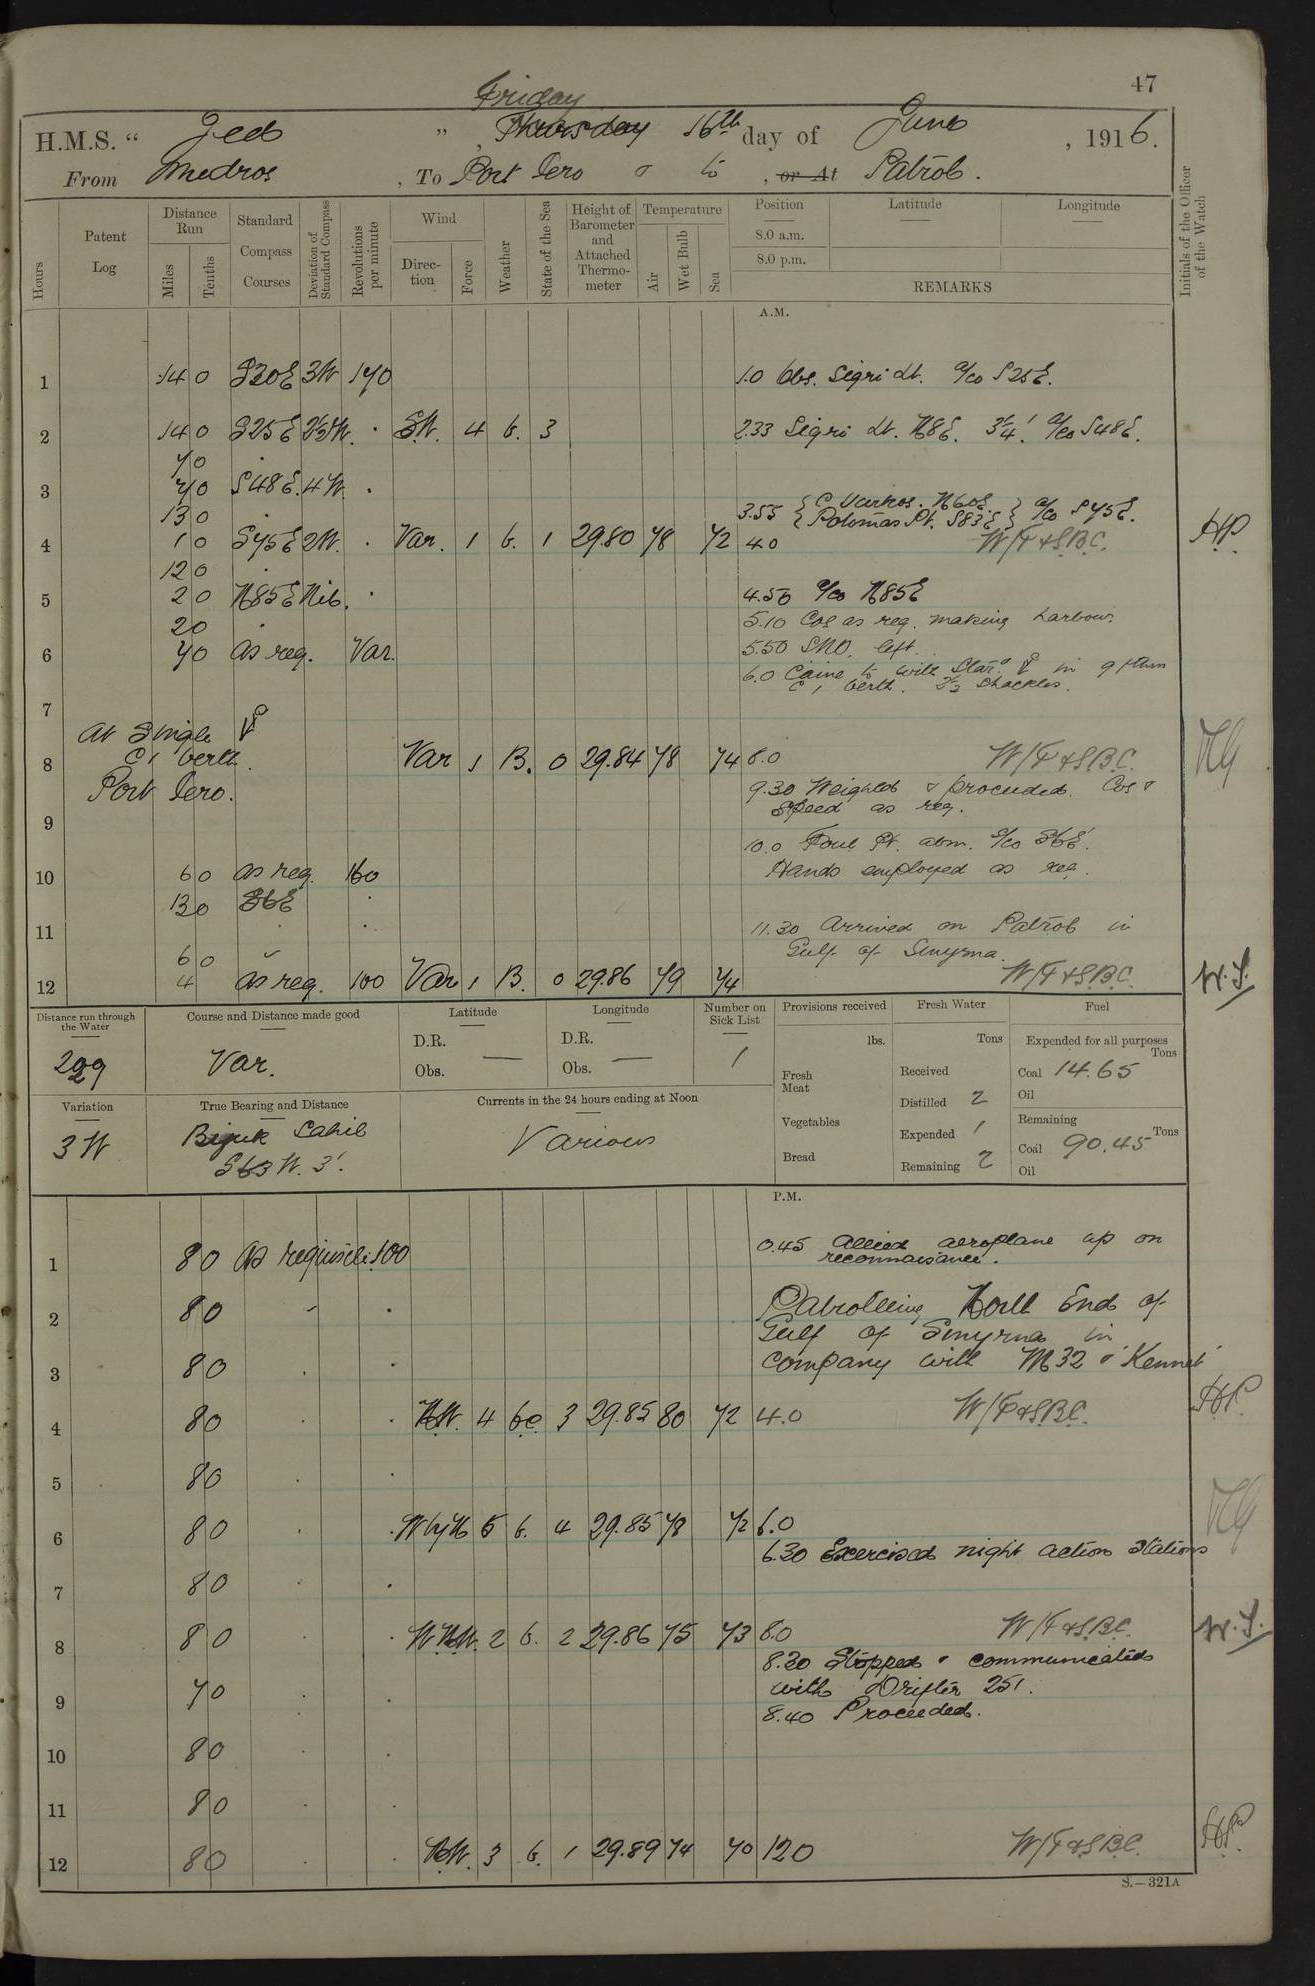 47
Friday
H.M.S. " Jed ", Thursday 16th day of June, 1916.
From Mudros, To Port Iero & to, or At Patrol.
Hours
Patent Log
Distance Run
Miles
Tenths
Standard Compass Courses
Deviation of Standard Compass
Revolutions per minute
Wind
Direction
Force
Weather
State of the Sea
Height of Barometer and Attached Thermometer
Temperature
Air
Wet Bulb
Sea
Position
Latitude
Longitude
8.0 a.m.
8.0 p.m.
REMARKS
Initials of the Officer of the Watch
A.M.
1 14 0 S30E 3W 170 1.0 Obs. Sigri Lt. a/co S25E.
2 14 0 S25E 2½W. . SW. 4 b. 3 2.33 Sigri Lt. N8E. 3¼'. a/co S48E.
7 0 .
3 7 0 S48E. 4W. .
13 0 . 3.55 { C Vurkos. N60E. } a/co S75E.
{ Potamas Pt. S83E }
4 1 0 S75E 2W. . Var. 1 b. 1 29.80 78 72 4.0 W/T & S.B.C. HP.
12 0 .
5 2 0 N85E Nil. . 4.50 a/co N85E
2 0 . 5.10 Cos as req. making harbour.
6 7 0 as req. Var. 5.50 SNO. left.
6.0 Came to with Starbd ⚓ in 9 fthms
C1 berth. 2½ shackles.
7
At Single ⚓
8 C1 berth. Var 1 B. 0 29.84 78 74 8.0 W/T & S.B.C.
Port Iero. 9.30 Weighed & proceeded. Cos &
9 speed as req.
10.0 Foul Pt. abm. S/co S6E.
10 6 0 as req. 160 Hands employed as req.
13 0 S6E .
11 . 11.30 Arrived on Patrol in
6 0 " Gulf of Smyrna.
12 4 as req. 100 Var 1 B. 0 29.86 79 74 W/T & S.B.C. W.S.
Distance run through the Water
Course and Distance made good
Latitude
Longitude
Number on Sick List
Provisions received
Fresh Water
Fuel
D.R.
D.R.
lbs.
Tons
Expended for all purposes
Tons
Var.
Obs. —
Obs. —
1
Fresh Meat
Received
Coal 14.65
Oil
Variation
True Bearing and Distance
Currents in the 24 hours ending at Noon
Vegetables
Distilled 2
Remaining
3 W
Sahib
S63W. 3'.
Various
Expended 1
Tons
Coal 90.45
Bread
Remaining 2
Oil
P.M.
1 8 0 as requisite 100 0.45 Allied aeroplane up on
reconnaisance.
2 8 0 " . Patrolling North End of
Gulf of Smyrna in
3 8 0 . . company with M32 & 'Kennet'
4 8 0 . . NW. 4 bc. 3 29.85 80 72 4.0 W/T & S.B.C. HP.
5 8 0 . .
6 8 0 . . W by N 5 b. 4 29.85 78 72 6.0
6.30 Exercised night action stations
7 8 0 .
8 8 0 . . WNW. 2 b. 2 29.86 75 73 8.0 W/T & S.B.C. W.S.
8.30 Stopped & communicated
9 7 0 . . with Drifter 251.
8.40 Proceeded.
10 8 0 . .
11 8 0 . .
12 8 0 . . NW. 3 b. 1 29.89 74 70 12 0 W/T & S.B.C. HP.
S.—321A